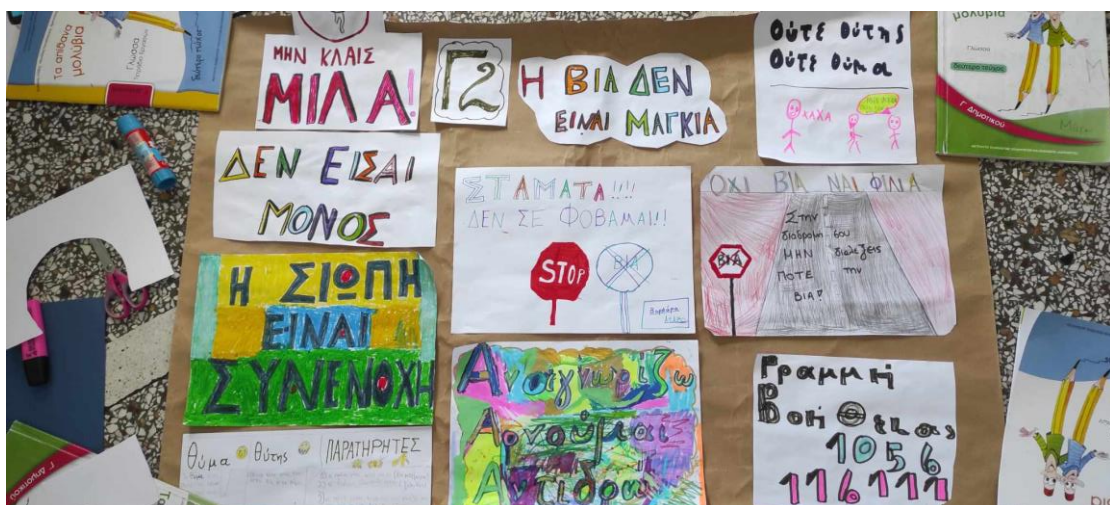 Τα απίθανα
μολύβια
Γλώσσα
Γ΄ Δημοτικού
ΜΗΝ ΚΛΑΙΣ
ΜΙΛΑ!
Γ2
Η ΒΙΑ ΔΕΝ
ΕΙΝΑΙ ΜΑΓΚΙΑ
Θύτε θύτης
Ούτε θύμα
ΧΑΧΑ
μολύβια
Γλώσσα
δεύτερο τεύχος
Γ΄ Δημοτικού
ΔΕΝ ΕΙΣΑΙ
ΜΟΝΟΣ
ΣΤΑΜΑΤΑ!!!!
ΔΕΝ ΣΕ ΦΟΒΑΜΑΙ!!!
STOP
ΒΙΑ
ΟΧΙ ΒΙΑ ΝΑΙ ΦΙΛΙΑ
ΒΙΑ
Στην
διαδρομή σου
ΜΗΝ διαλέξεις
ΠΟΤΕ την
ΒΙΑ!
Η ΣΙΩΠΗ
ΕΙΝΑΙ
ΣΥΝΕΝΟΧΗ
Αναγνωρίζω
Αρνούμαι
Αντιδρώ
Γραμμή
Βοήθειας
1056
116111
Θύμα Θύτης ΠΑΡΑΤΗΡΗΤΕΣ
Γ΄ Δημοτικού